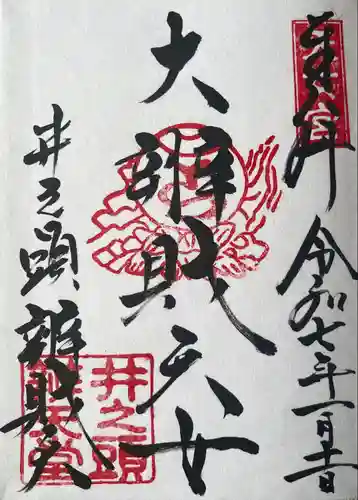 奉拝
令和七年一月十一日
大辨財天女
井之頭辨財天
井之頭
辨財天堂